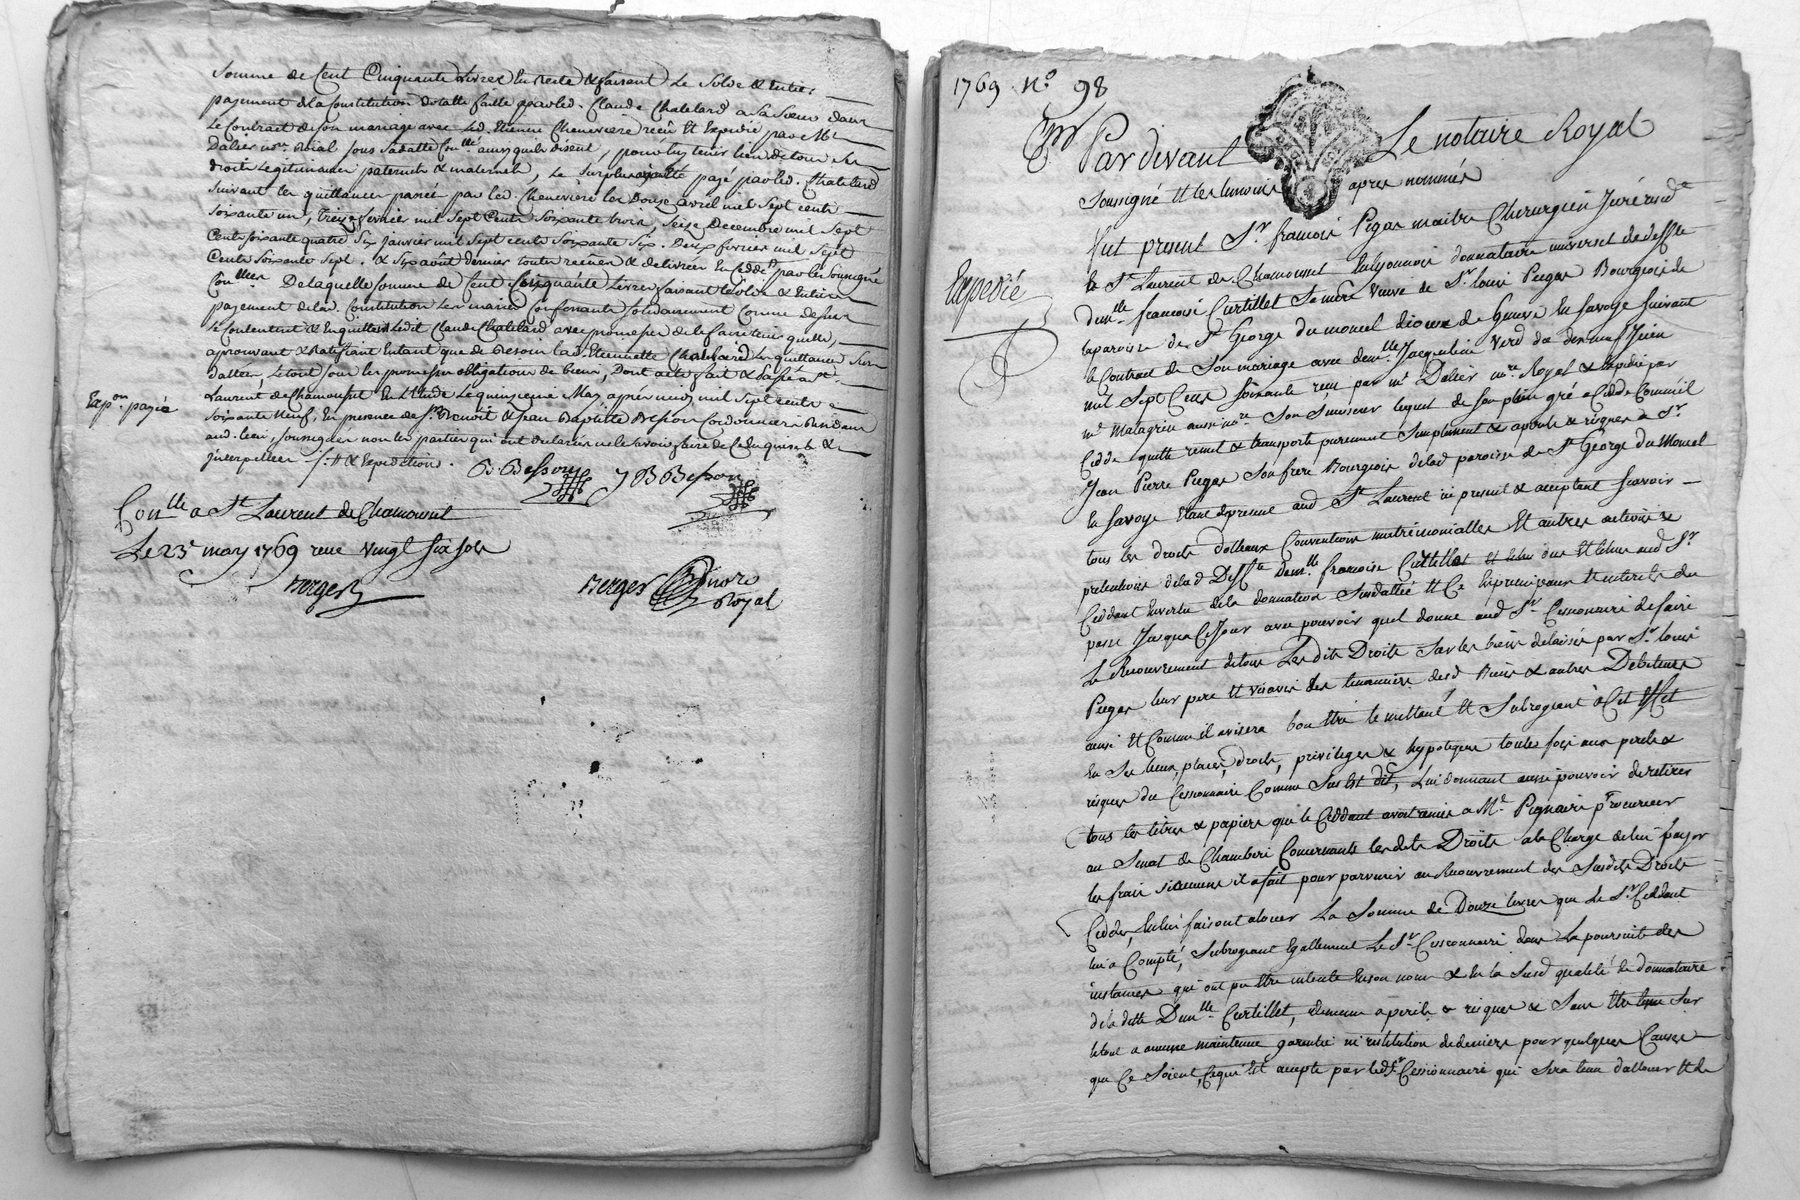 Somme de Cent Cinquante Livres En reste & faisant Le Solde & Entier
payement de la Constitution dotalle faitte par led. Claude Chatelard a sa Sœur dans
Le Contract de son mariage avec Led. Etienne Chenevière recû Et Expedié par Me
Dalier nore Roial sous Sa datte Conllé ainsy quils disent, pour luy tenir lieu de tous Ses
droits Legitimaires paternels & maternels, Le Surplus payé par led. Chatelard
Suivant les quittances passée par led. Chenevière les Douze avril mil Sept cents
Soixante un, Treize fevrier mil Sept Cents Soixante trois, Seize Decembre mil Sept
Cents soixante quatre Six Janvier mil Sept cents Soixante Six. Deux fevrier mil Sept
Cents Soixante Sept. & Six août dernier toutes recües & delivrées par le Soussigné
Conllées De laquelle Somme de Cent Cinquante Livres faisant le Solde & Entier
payement de lad. Constitution Les mariés Confessants Solidairement Comme dessus
Se Contentent & En quittent Ledit Claude Chatelard avec promesse de le faire tenir quitte,
aprouvant & Ratifiant Entant que de Besoin lad. Etiennette Chatelard Les quittances Sus
dattées, Le tout sous les promesses obligations de biens, Dont acte fait & Passé a St
Exp.on payée
Laurent de Chamousset En L'Etude Le quinzieme May après midy mil Sept cents
Soixante Neuf, En presence de Sr Benoit & Jean Baptiste Besson Cordonniers Residants
aud. lieu, soussignés non les parties qui ont declaré ne le Savoir faire de ce Enquis &
Interpellées
B. Besson J B Besson
Conllé a St Laurent de Chamousset
Le 23e may 1769 reçu vingt six sols
Verger
Verger Nore
Royal
1769 No 98
Par devant Le notaire Royal
Soussigné Et les temoins apres nommés
fut present Sr françois Pegas maitre Chirurgien Juré resdt
Expedié
a St Laurent de Chamousset En lyonnois donnataire universel de deffte
demlle françoise Curtillet Sa mère Veuve de Sr louis Pegas Bourgeois de
la paroisse de St George du moncel diocese de Geneve En Savoye suivant
le Contract de Son mariage avec demlle Jacqueline Verd du dix neuf Juin
mil Sept Cens Soixante reçu par me Dalier nre Royal & Expedié par
me Matagrin aussi nre Son Successeur lequel de Son plein gré a Cedde
Cedde quitte remet & transporte purement Simplement & a Sr
Jean Pierre Pegas Son frere Bourgeois de lad paroisse de St George du Moncel
En Savoye Etant de present aud St Laurent ici present & acceptant Scavoir
tous les droits dotteaux Conventions matrimonialles Et autres actions &
pretentions de lad Deffte demlle françoise Curtillet Et Echus aud Sr
Ceddant En vertu de la donnation Susdattée Et Ce
passé Jusqua Ce Jour avec pouvoir quil donne aud Sr Cessionnaire de faire
Le Recouvrement de tous Les dits Droits Sur les biens delaissés par Sr louis
Pegas leur pere Et vis avis des tenanciers desd Biens & autres Debiteurs
ainsi Et Comme il avisera bon Etre le mettant Et Subrogeant à Cet Effet
En Ses lieux, places, droits, privileges & hypoteques toutes fois aux perils &
risques du Cessionnaire Comme Sus Est dit, Lui donnant aussi pouvoir de retirer
tous les titres & papiers que le Ceddant avoit remis a Me Pignaire procureur
au Senat de Chamberi Concernants lesdits Droits a la Charge de lui payer
les frais si aucuns il a fait pour parvenir au Recouvrement des Susdits Droits
Ceddés, En lui faisant alouer La Somme de Douze livres que le Sr Ceddant
lui a Compté, Subrogeant Egallement Le Sr Cessionnaire dans La poursuite des
instances qui ont pu Etre intenté En son nom & En la Susd qualité de donnataire
de la ditte Demlle Curtillet, Demeure a perils & risques & Sans Etre tenu Sur
letout a aucune maintenue garentie ni restitution de deniers pour quelques Causes
que Ce Soient, Ce qui Est accepté par led Sr Cessionnaire qui Sera tenu d'allouer Et de